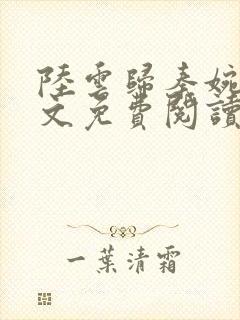 陸雲歸秦婉
文免費閱讀
一葉清霜